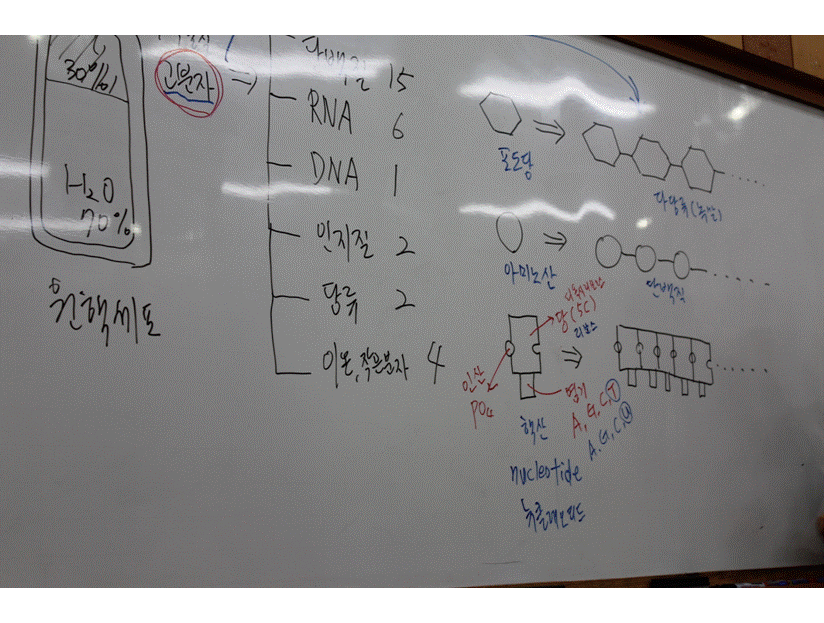 30%
고분자
단백질 15
RNA 6
DNA 1
H₂O
70%
인지질 2
당류 2
이온, 작은분자 4
원핵세포
포도당
다당류(녹말)
아미노산
단백질
당(5C)
리보스
인산
PO₄
염기
A, G, C, T
A, G, C, U
핵산
nucleotide
뉴클레오타이드